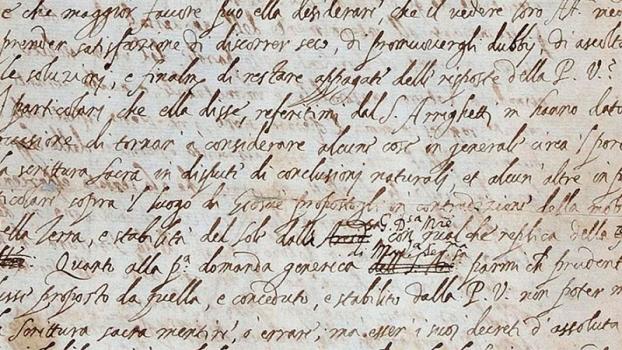 e che maggior favore può ella desiderare che il vedere loro Al.
prender satisfazione di discorrer seco, di promuovergli dubbij, di ascolta
le soluzioni, e finalm.e di restare appagate delle risposte della P. V.ª
particolari, che ella disse, referitimi dal S. Arrighetti m' hanno dato
cassione di tornar à considerare alcune cose in generale circa 'l por
la scrittura sacra in dispute di conclusioni naturali et alcun' altre in p
ticolare sopra 'l luogo di Giosuè propostogli in contradizione della mo
ella Terra, e stabilità del Sole dalla G. D.sa M.re con qual che replica della
Quanto alla p.ª domanda generica di Mad.ª Ser.ma parmi ch prudent
sse proposto da quella, e conceduto, e stabilito dalla P. V. non poter m
a Scrittura sacra mentire, ò errare; ma esser i suoi decreti d' assoluta